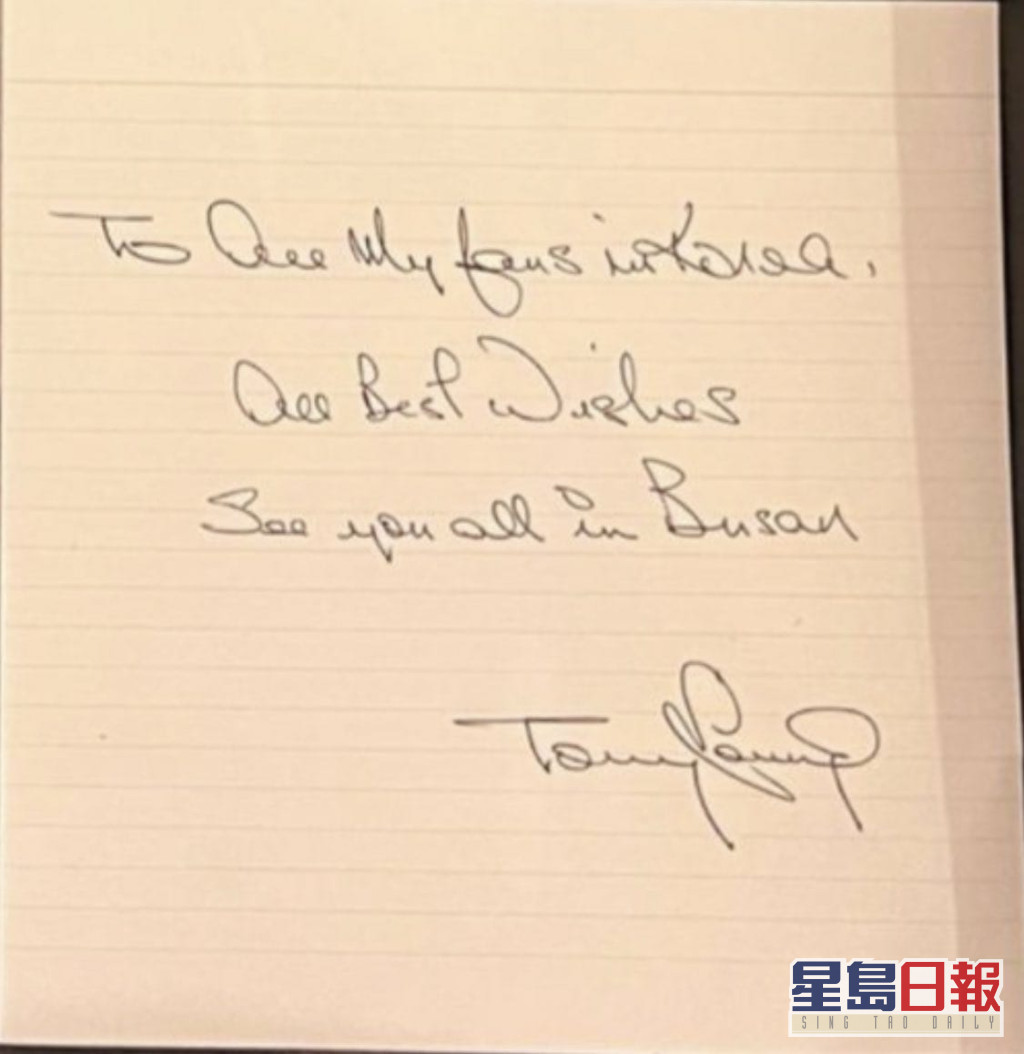 To All My fans in Korea,
All Best Wishes
See you all in Busan
Tony Leung
星島日報
SING TAO DAILY